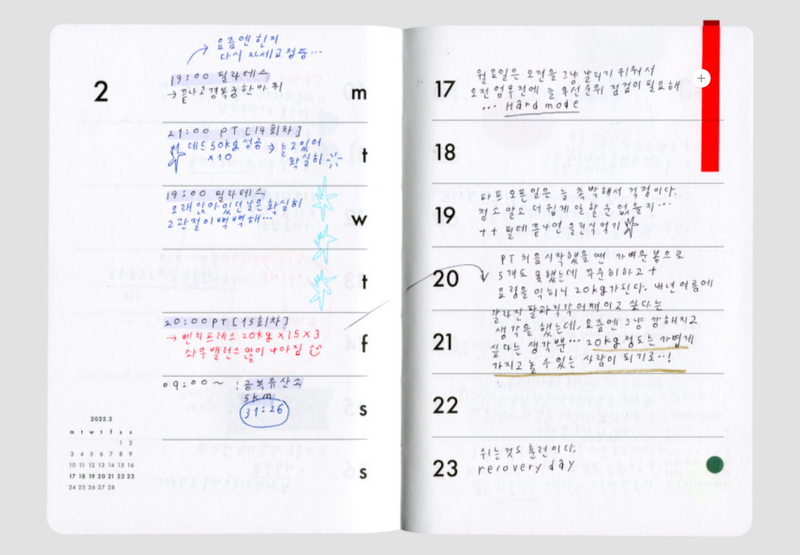 2
요즘엔 헌지
다시 자세 교정중...
19:00 필라테스
→ 끝나고 경복궁 한바퀴
m
21:00 PT [14회차]
데드 50kg 성공 → 늘고있어
×10 확실히
t
19:00 필라테스
오래 앉아 있던 날은 확실히
고관절이 뻑뻑해...
w
t
20:00 PT [15회차]
→ 벤치프레스 20kg ×15×3
좌우밸런스 많이 나아짐
f
09:00~ 공복유산소
5km
31:26
s
s
2025.2
m t w t f s s
1 2
3 4 5 6 7 8 9
10 11 12 13 14 15 16
17 18 19 20 21 22 23
24 25 26 27 28
17
월요일은 오전을 그냥 날리기 쉬워서
오전 업무전에 늘 우선순위 점검이 필요해
... Hard mode
18
19
파프 오픈일은 늘 촉박해서 걱정이다.
평소 알고 더 쉽게 안할순 없을지...
++ 필테 끝나면 올건식 먹기
20
PT 처음 시작했을 땐 가벼운 봉으로
5개도 못했는데 꾸준히하고 +
요령을 익히니 20kg가 된다. 내년 여름에
갈라진 팔과 직각 어깨이고 싶다는
21
생각을 했는데, 요즘엔 그냥 강해지고
싶다는 생각뿐... 20kg 정도는 가볍게
가지고 놀 수 있는 사람이 되기로..!
22
23
쉬는것도 훈련이다.
recovery day